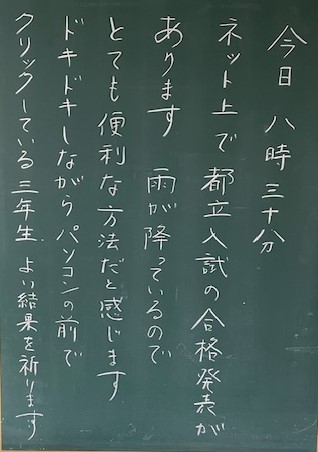 今日 八時三十分
ネット上で都立入試の合格発表が
あります 雨が降っているので
とても便利な方法だと感じます
ドキドキしながらパソコンの前で
クリックしている三年生、よい結果を祈ります